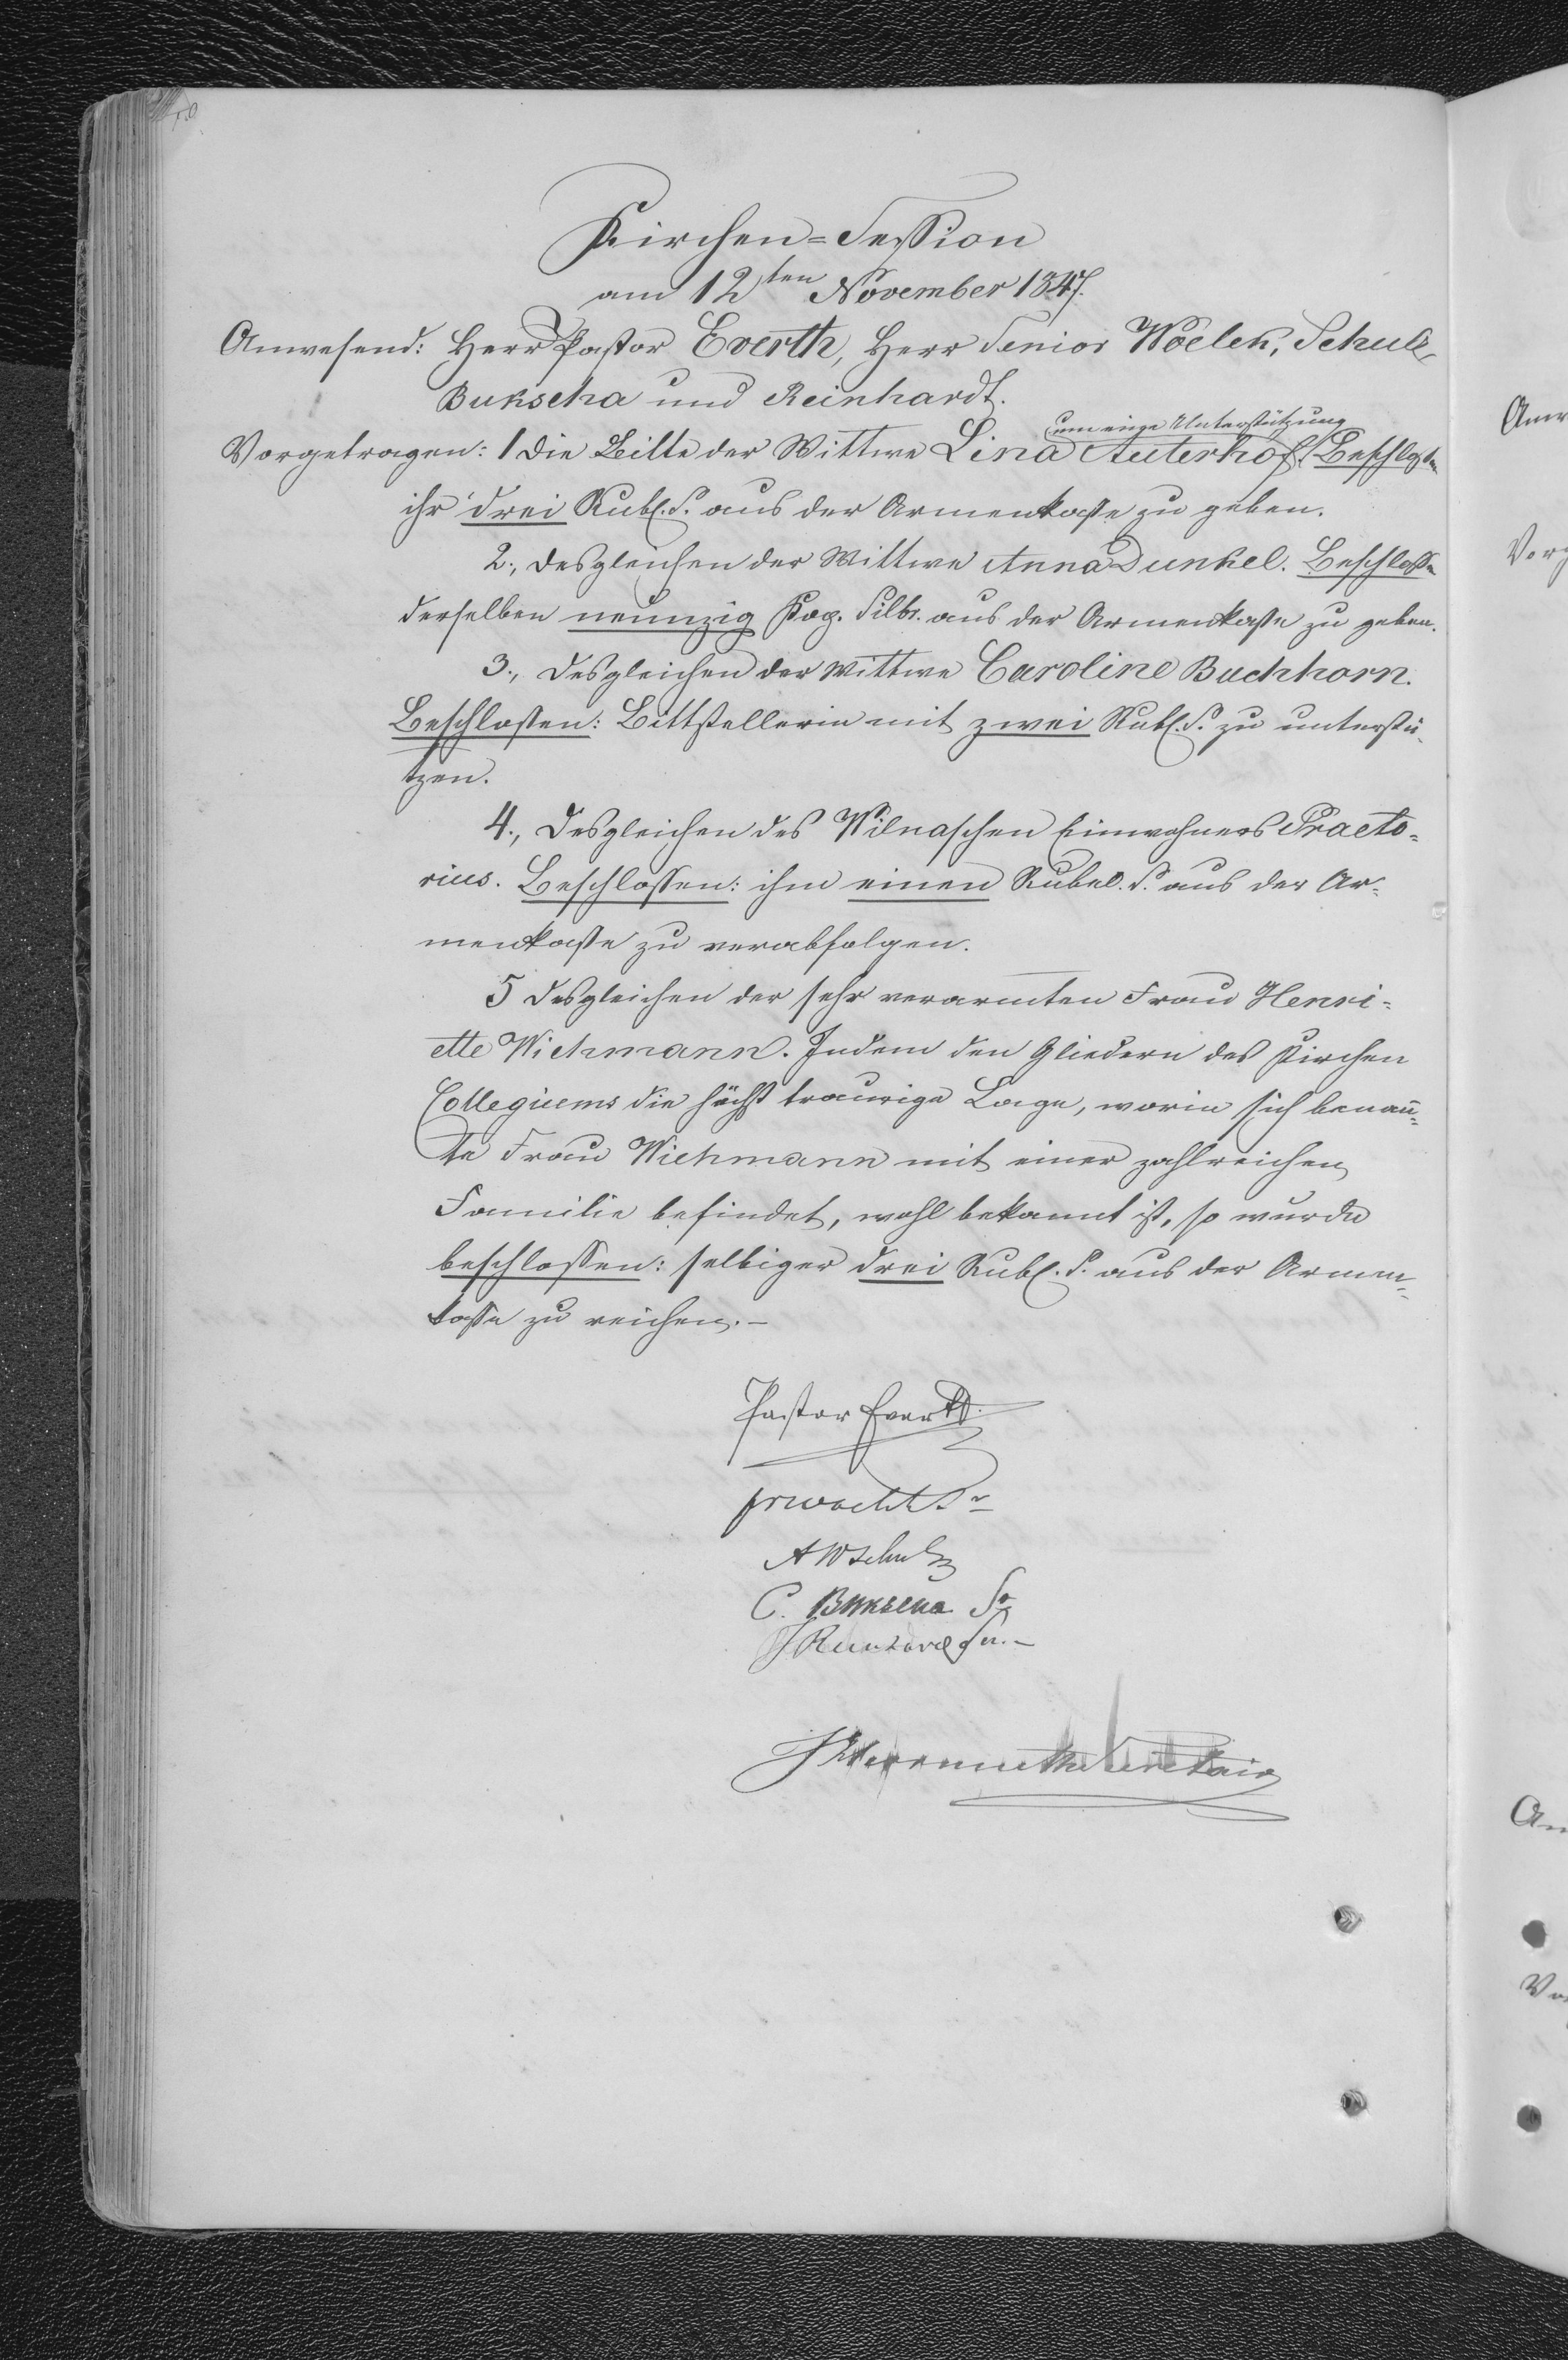 Kirchen=Session
am 12ten November 1847.
Anwesend: Herr Pastor Everth, Herr Senior Woelck, Schulz,
Bukscha und Reinhardt.
um einige Unterstützung
Vorgetragen: 1 Die Bitte der Wittwe Lina Auterhof. Beschloßen
ihr drei Rubl. S. aus der Armenkasse zu geben.
2., Desgleichen der Wittwe Anna Dunkel. Beschloßen
derselben neunzig Kop. Silbr. aus der Armenkasse zu geben.
3., Desgleichen der Wittwe Caroline Buchhorn.
Beschloßen: Bittstellerin mit zwei Rubl. S. zu unterstü-
tzen.
4., Desgleichen des Wilnaschen Einwohners Praeto=
rius. Beschloßen: ihm einen Rubel. S. aus der Ar=
menkasse zu verabfolgen.
5 Desgleichen der sehr verarmten Frau Henri=
ette Wichmann. Indem den Gliedern des Kirchen
Collegiums die höchst traurige Lage, worin sich benañ=
te Frau Wichmann mit einer zahlreichen
Familie befindet, wohl bekannt ist, so wurde
beschloßen: selbiger drei Rubl. S. aus der Armen=
kasse zu reichen.–
Pastor Everth.
A W Schulz
C. Bukscha Sr